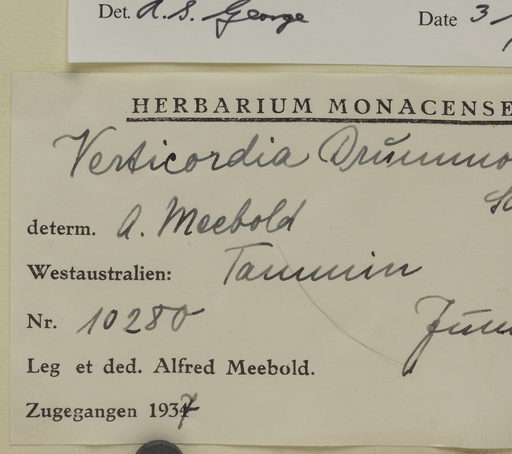 Det. A. S. George Date 3
HERBARIUM MONACENSE
Verticordia Drummo
determ. A. Meebold
Westaustralien: Tammin
Nr. 10280
Leg et ded. Alfred Meebold.
Zugegangen 1937